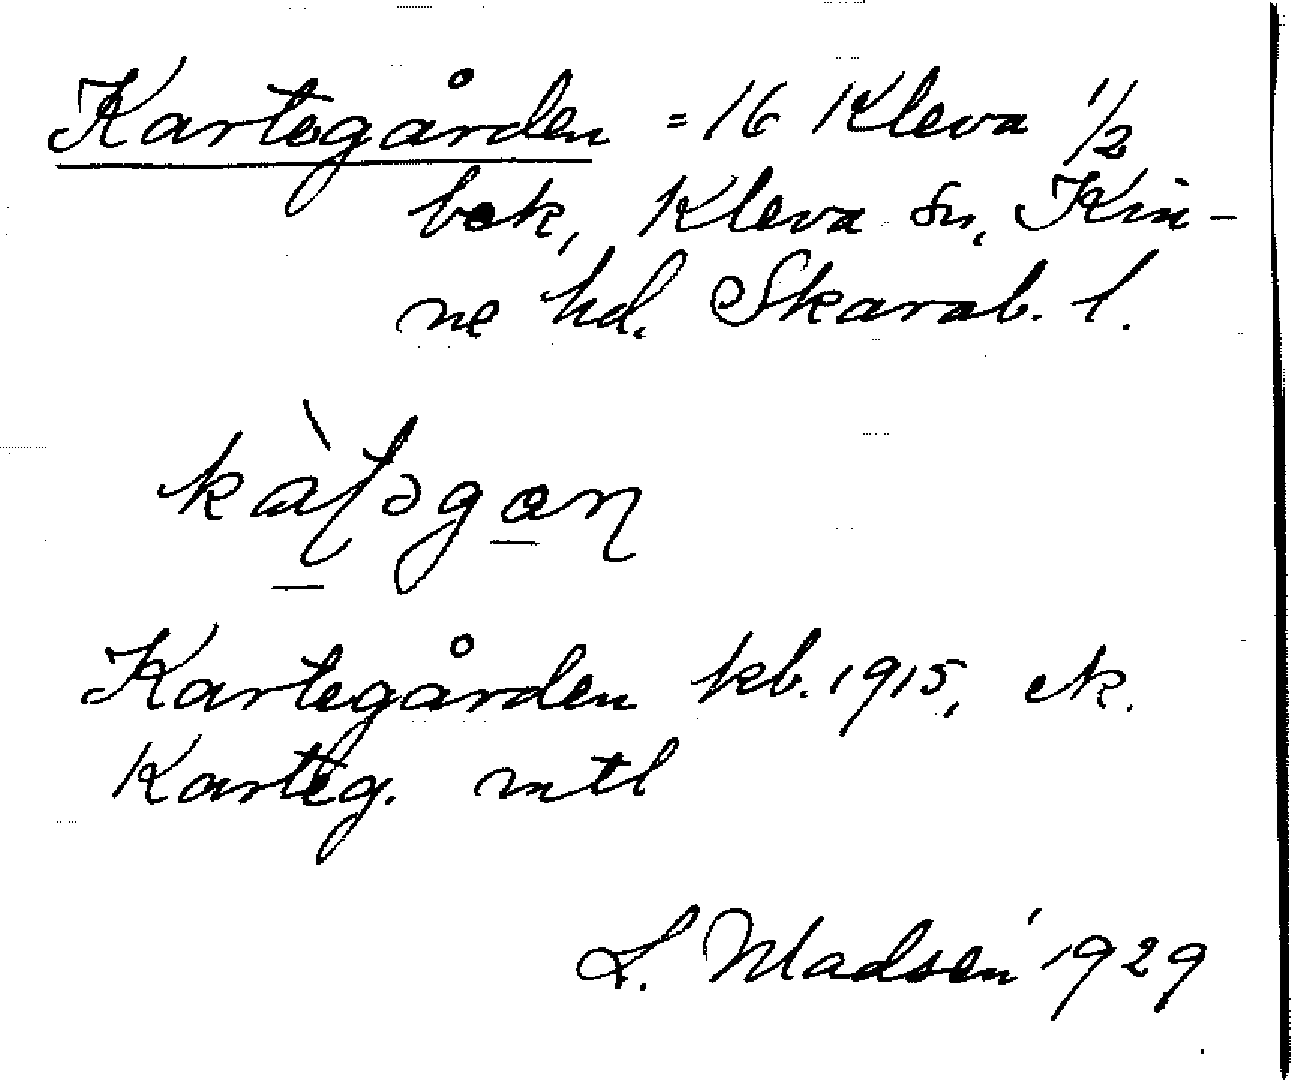 Kartegården = 16 Kleva 1/2
bek, Kleva sn, Kin-
ne hd. Skarab. l.
Kartegården kb. 1915, ek.
Karteg. mtl
L. Madsén 1929